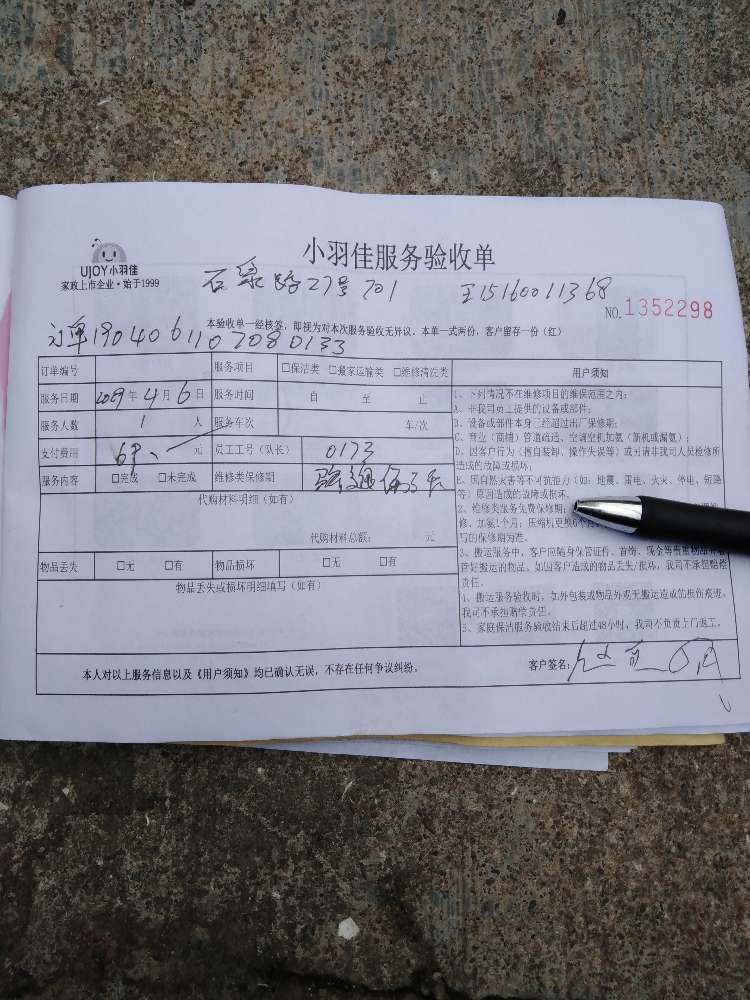 小羽佳服务验收单
UJOY小羽佳
家政上市企业·始于1999
路27号701 王15160011368
NO.1352298
本验收单一经核签，即视为对本次服务验收无异议。本单一式两份，客户留存一份（红）
订单190406110
订单编号 服务项目 □保洁类 □搬家运输类 □维修清洗类 用户须知
服务日期 年4月6日 服务时间 自 至 止
服务人数 1 人 服务车次 车/次
支付费用 元 员工工号（队长） 0173
服务内容 □完成 □未完成 维修类保修期
代购材料明细（如有）
代购材料总额： 元
物品丢失 □无 □有 物品损坏 □无 □有
物品丢失或损坏明细填写（如有）
1、下列情况不在维修项目的维保范围之内：
A、非我司员工提供的设备或部件；
B、设备或部件本身已经超过出厂保修期；
C、商业（商铺）管道疏通，空调空机加氨（新机或漏氨）；
D、因客户行为（擅自装卸、操作失误等）或另请非我司人员检修所
造成的故障或损坏；
E、因自然灾害等不可抗能力（如：地震、雷电、火灾、停电、短路
等）原因造成的故障或损坏。
2、检修类服务免费保修期：
修、加氨1个月；压缩机更换6个月
写的保修期为准。
3、搬运服务中，客户应随身保管证件、首饰、现金等贵重物品并
管好搬运的物品。如因客户造成的物品丢失/损坏，我司不承担赔偿
责任。
4、搬运服务验收时，如外包装或物品外观无搬运造成的损伤痕迹，
我司不承担赔偿责任。
5、家庭保洁服务验收结束后超过48小时，我司不负责上门返工。
本人对以上服务信息以及《用户须知》均已确认无误，不存在任何争议纠纷。 客户签名：